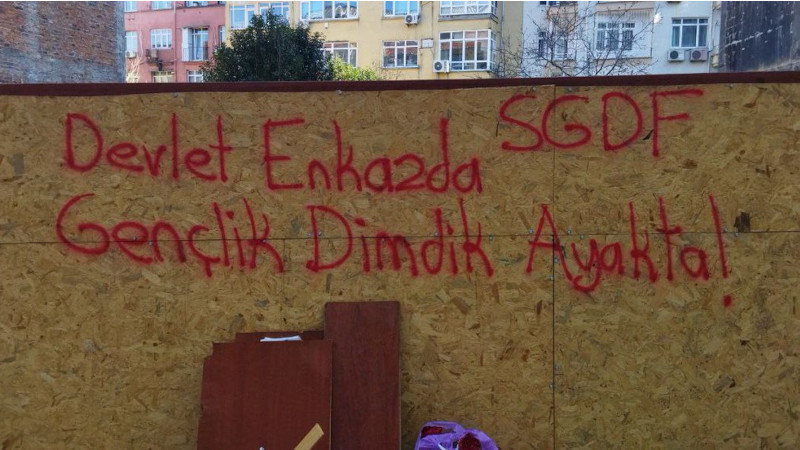 Devlet Enkazda SGDF
Gençlik Dimdik Ayakta!